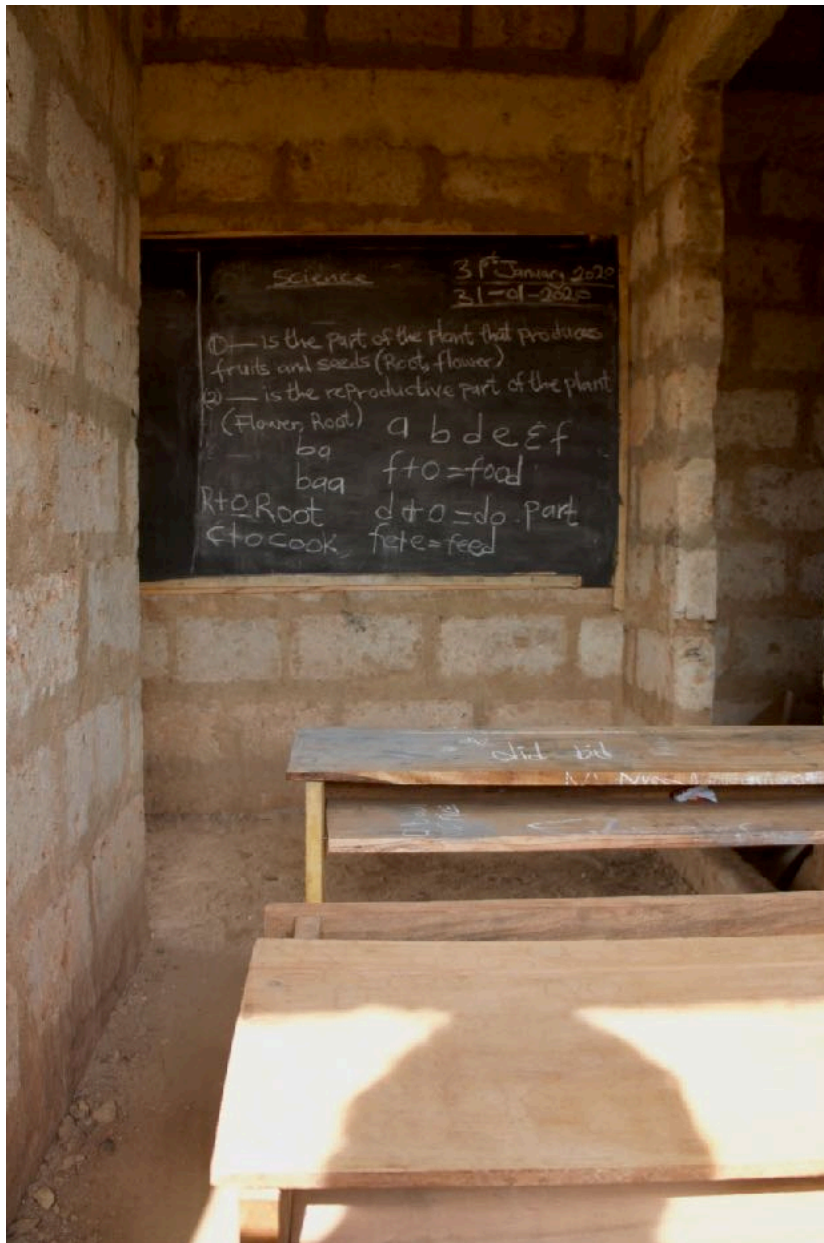 Science
31st January 2020
31-01-2020
(1) — is the part of the plant that produces
fruits and seeds (Root, flower)
(2) — is the reproductive part of the plant
(Flower, Root)
a b d e ɛ f
ba
f+o=food
baa
R+o Root
d+o=do part
C+o cook
fe+e=feed
did bid